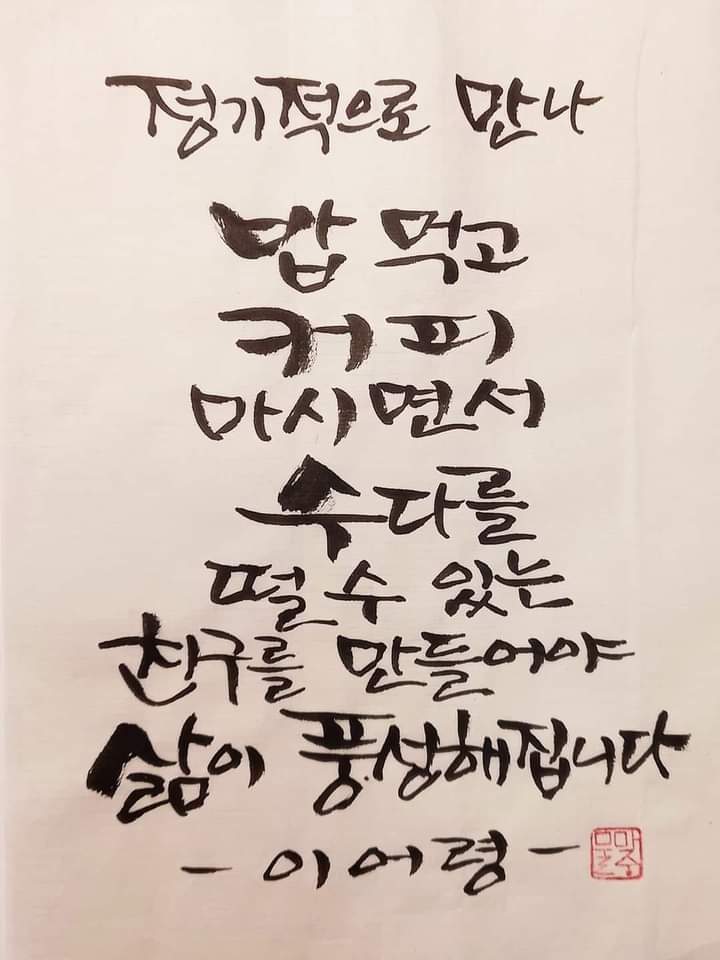 정기적으로 만나
밥 먹고
커피
마시면서
수다를
떨 수 있는
친구를 만들어야
삶이 풍성해집니다
- 이어령 -